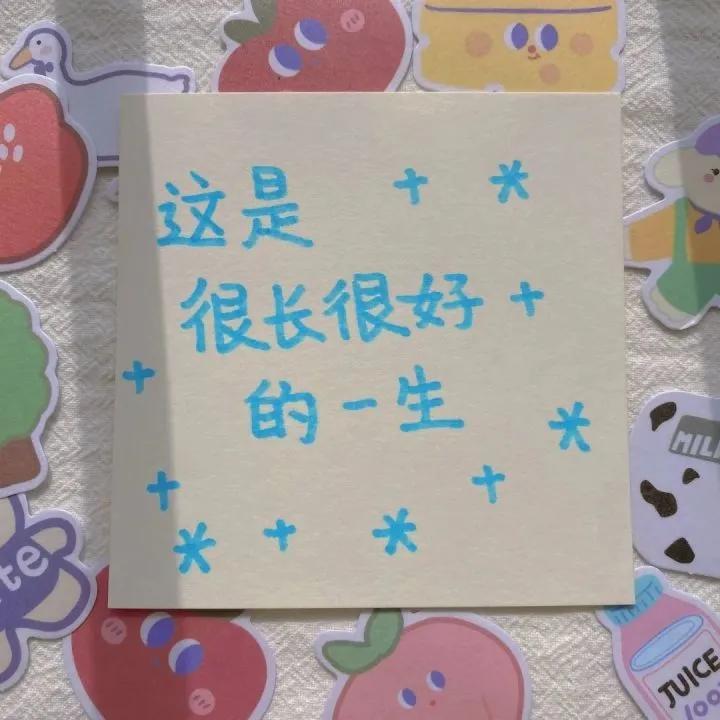 这是
很长很好
的一生
MIL
te
JUICE
100%